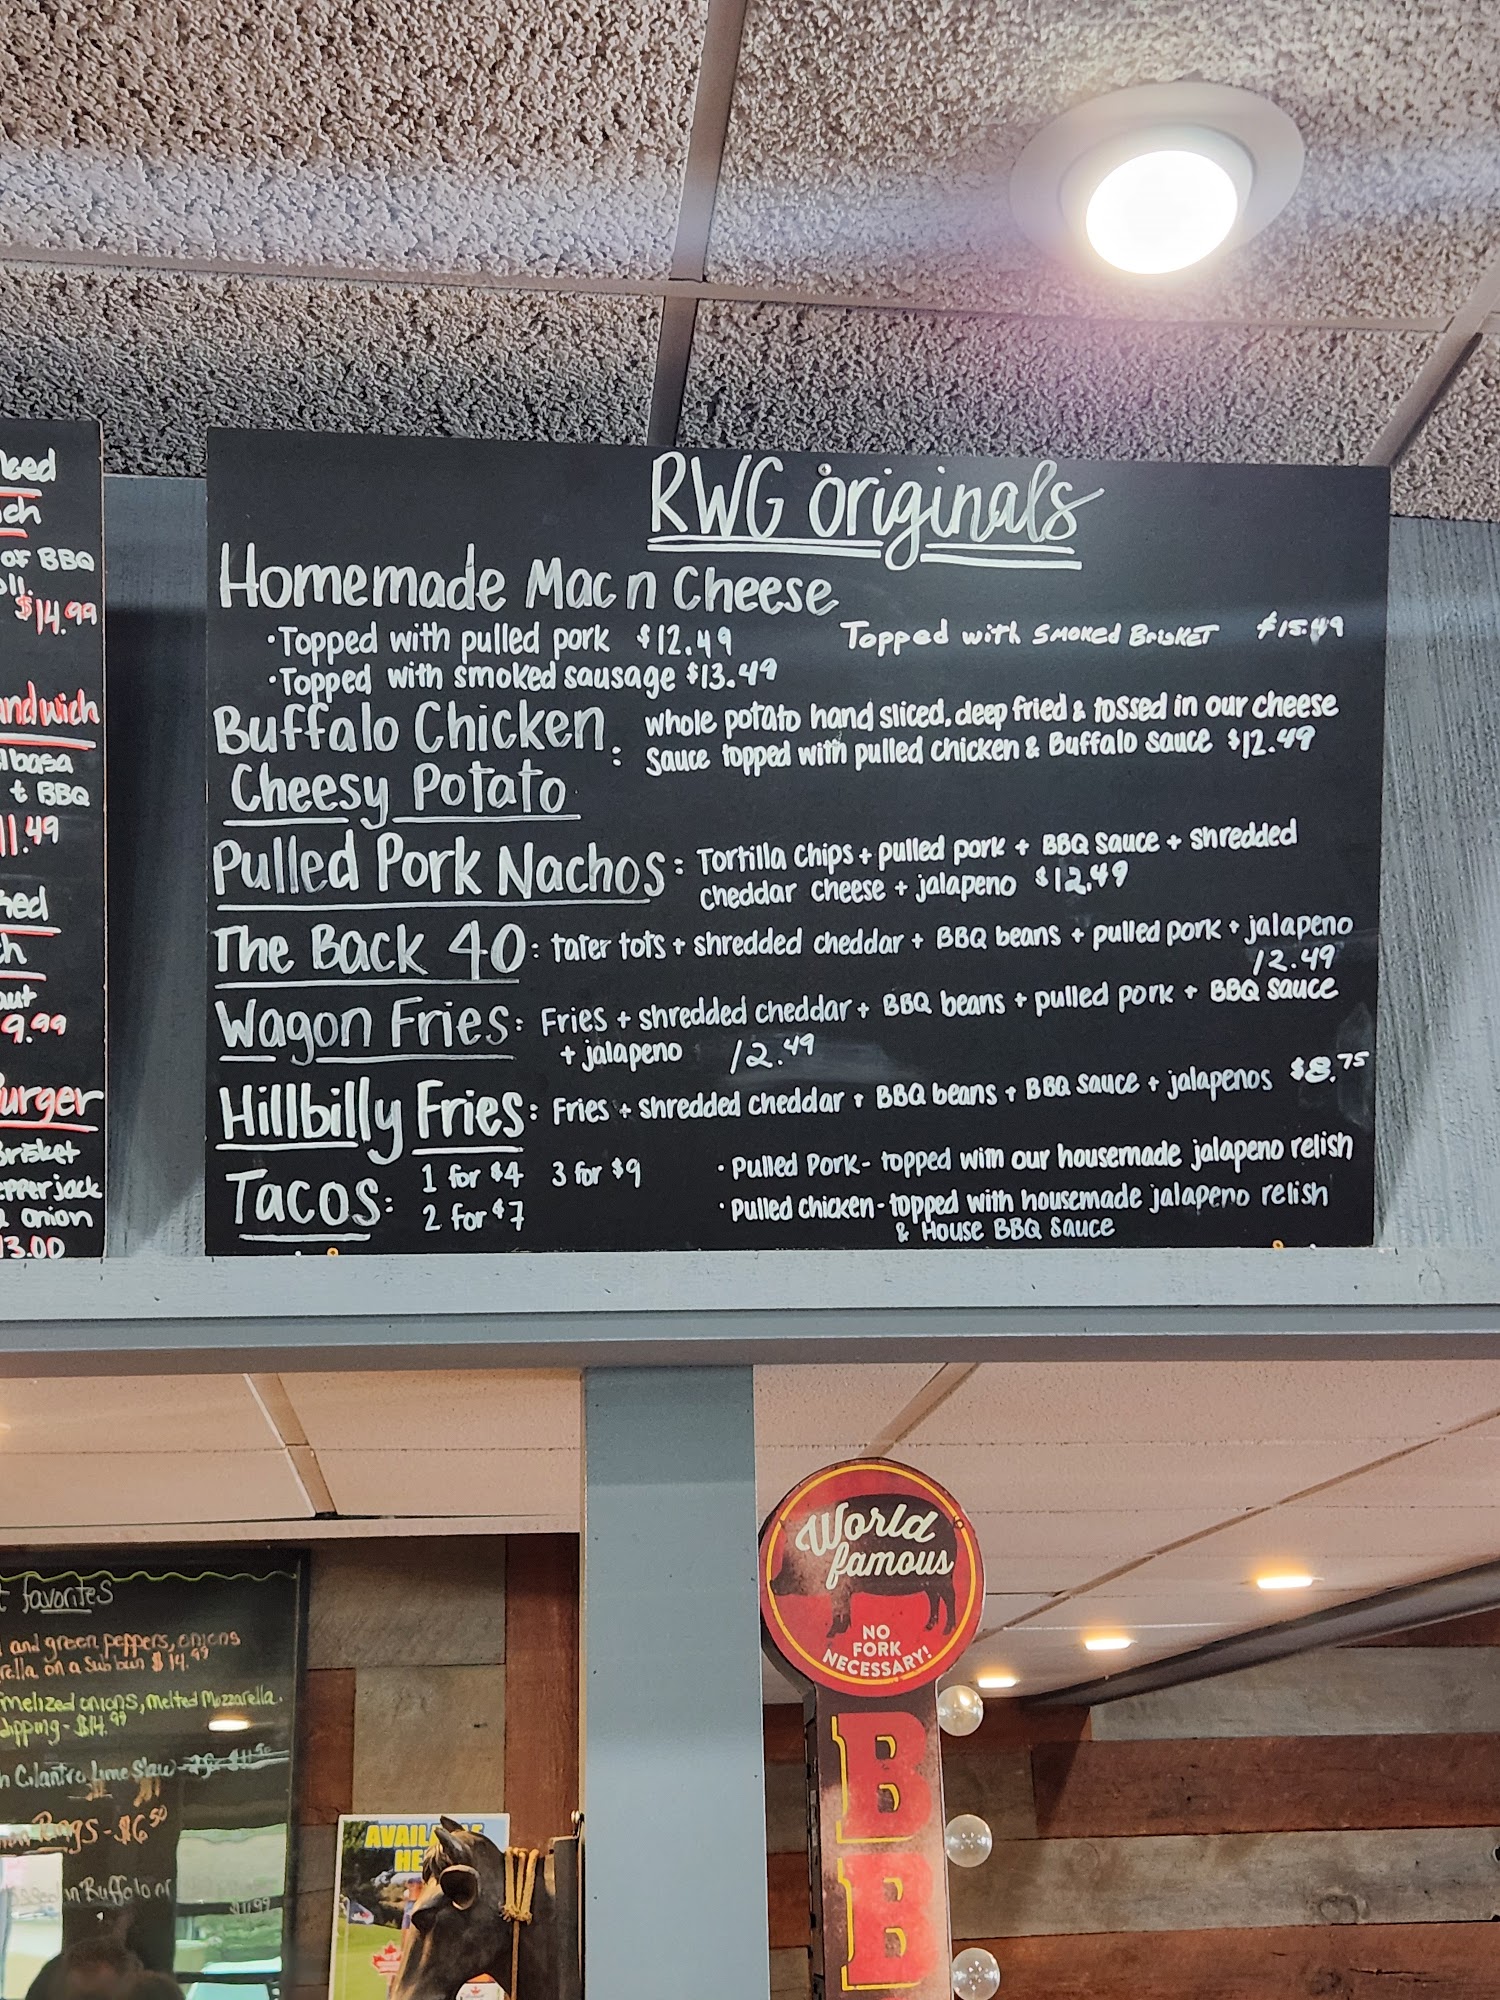 RWG Originals
Homemade Mac n Cheese
· Topped with pulled pork $12.49
Topped with Smoked Brisket $15.49
· Topped with smoked sausage $13.49
Buffalo Chicken
Cheesy Potato :
whole potato hand sliced, deep fried & tossed in our cheese
Sauce topped with pulled chicken & Buffalo Sauce $12.49
Pulled Pork Nachos: Tortilla Chips + pulled pork + BBQ Sauce + shredded
cheddar cheese + jalapeno $12.49
The Back 40: tater tots + shredded cheddar + BBQ beans + pulled pork + jalapeno
12.49
Wagon Fries: Fries + shredded cheddar + BBQ beans + pulled pork + BBQ Sauce
+ jalapeno 12.49
Hillbilly Fries: Fries + shredded cheddar + BBQ beans + BBQ sauce + jalapenos $8.75
Tacos: 1 for $4 3 for $9
2 for $7
· Pulled Pork- topped with our housemade jalapeno relish
· Pulled chicken- topped with housemade jalapeno relish
& House BBQ Sauce
of BBQ
$14.99
andwich
t BBQ
11.49
9.99
urger
Brisket
epperjack
onion
13.00
favorites
and green peppers, onions
rella on a Sub bun $14.99
melized onions, melted Mozzarella.
dipping - $14.99
Cilantro Lime Slaw
Rings - $6.50
in Buffalo or
$11.99
World
famous
NO
FORK
NECESSARY!
B
B
AVAILABLE
HE